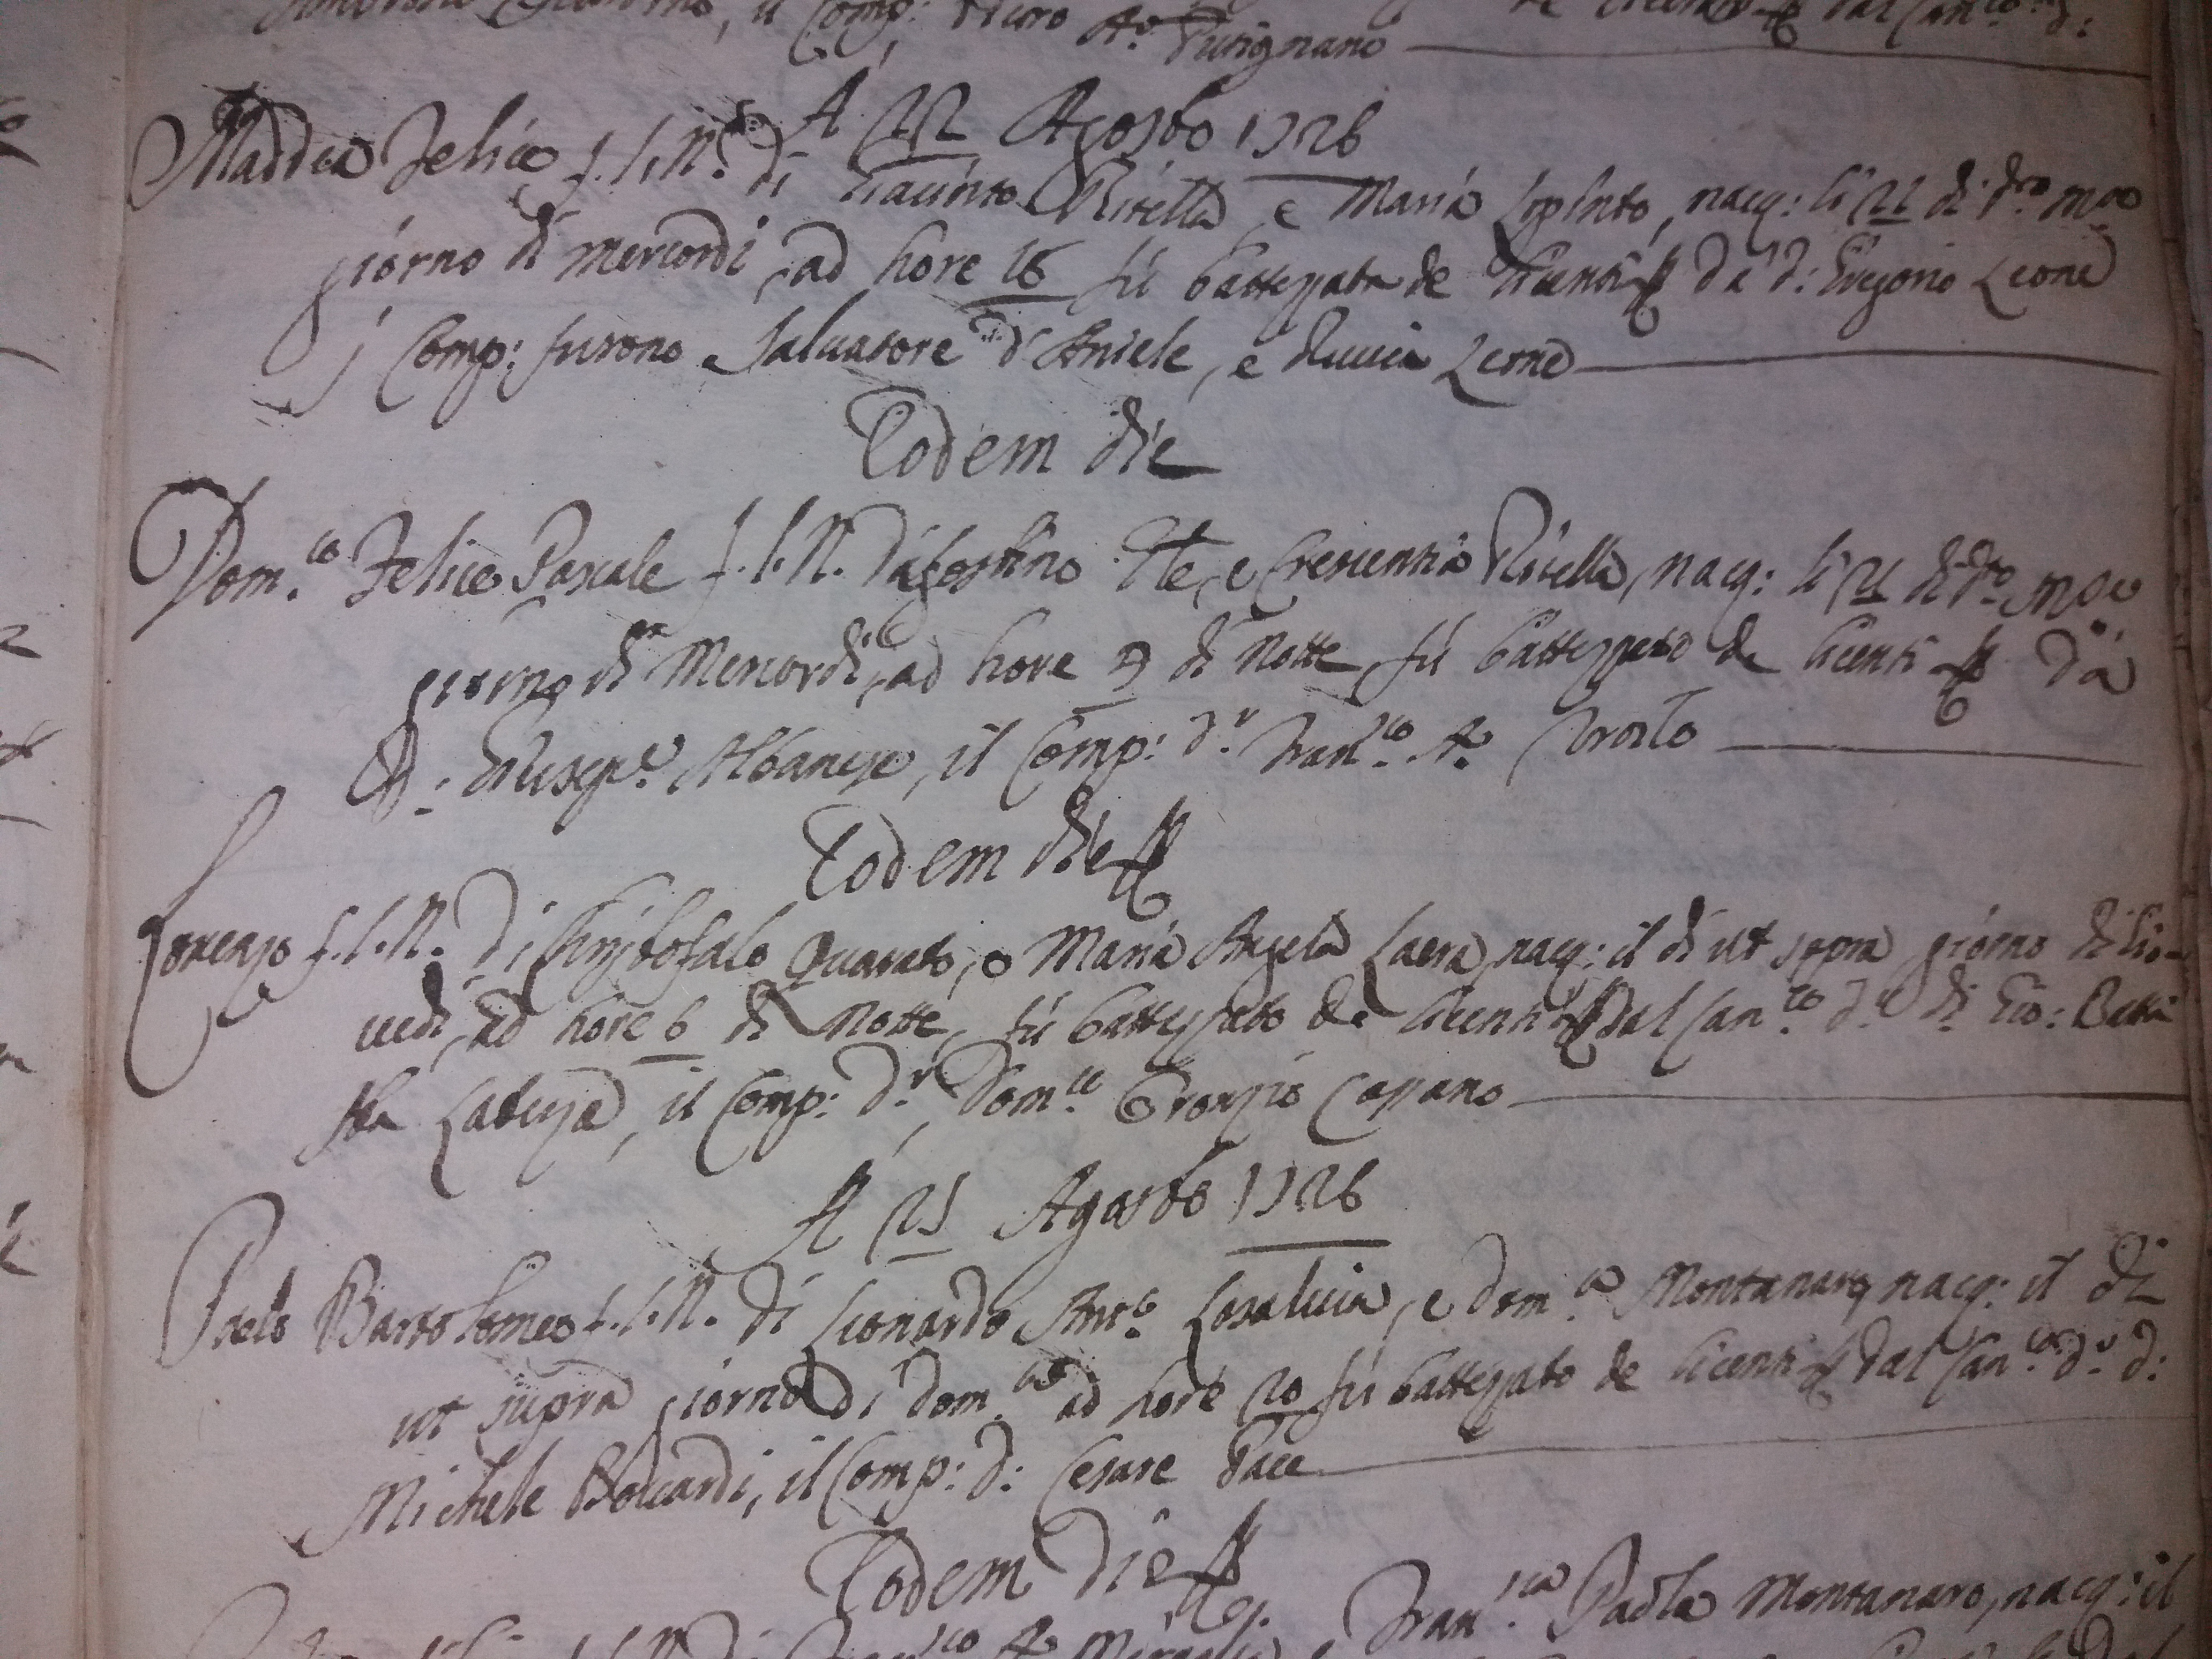 il Comp: Putignano
A 22 Agosto 1726
Maddea Felice f. l. N. di Giacinto Pirella, e Maria Lopinto, nacq: li 21 di d.to mese
giorno di mercordi, ad hore 16 fù battezzata de licentia da d: Gregorio Leone
i Comp: furono Salvatore d'Aniele, e Leone
Eodem die
Dom.co Felice Pascale f. l. N. d'Agostino e Crescentia Pirella, nacq: li 21 di d.to mese
giorno di Mercordi, ad hore 3 di Notte, fù battezzato de licentia da
D: Giusep.e Albanese, il Comp: d.r Fran.co A.o
Eodem die
Lorenzo f. l. N. di Christofalo Quarato, e Maria Angela Laera, nacq: il di ut sopra giorno di Gio-
vedi, ad hore 6 di Notte, fù battezzato de licentia dal Can.co d.r d: Gio: Batti
sta il Comp: d.r Dom.co Oronzio Cassano
A 25 Agosto 1726
Paolo Bartolomeo f. l. N. di Leonardo Ant.o Losaluia, e Dom.ca Montanaro, nacq: il di
ut supra giorno di Dom.ca ad hore 20 fù battezzato de licentia dal Can.co d.r d:
Michele il Comp: d: Cesare Pace
Eodem die
Fran.ca Paola Montanaro, nacq: il